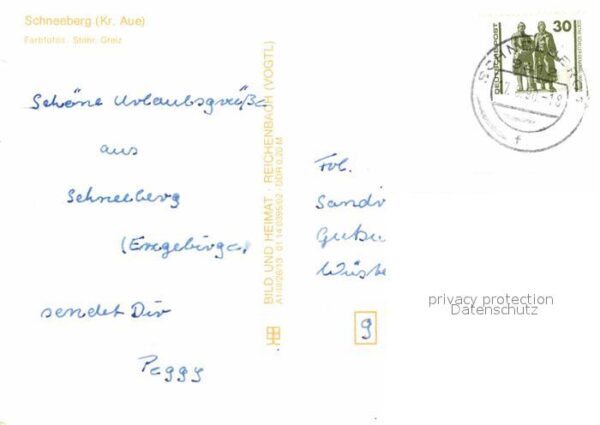 Schneeberg (Kr. Aue)
Farbfotos: Stöhr, Greiz
Schöne Urlaubsgrüße
aus
Schneeberg
(Erzgebirge)
sendet Dir
Peggy
BILD UND HEIMAT · REICHENBACH (VOGTL)
A1/III/26/13 01 14 0395/02 · DDR 0,20 M
DEUTSCHE POST
30
SCHNEEBERG
Frl.
Sandr
Wüste
9
privacy protection
Datenschutz